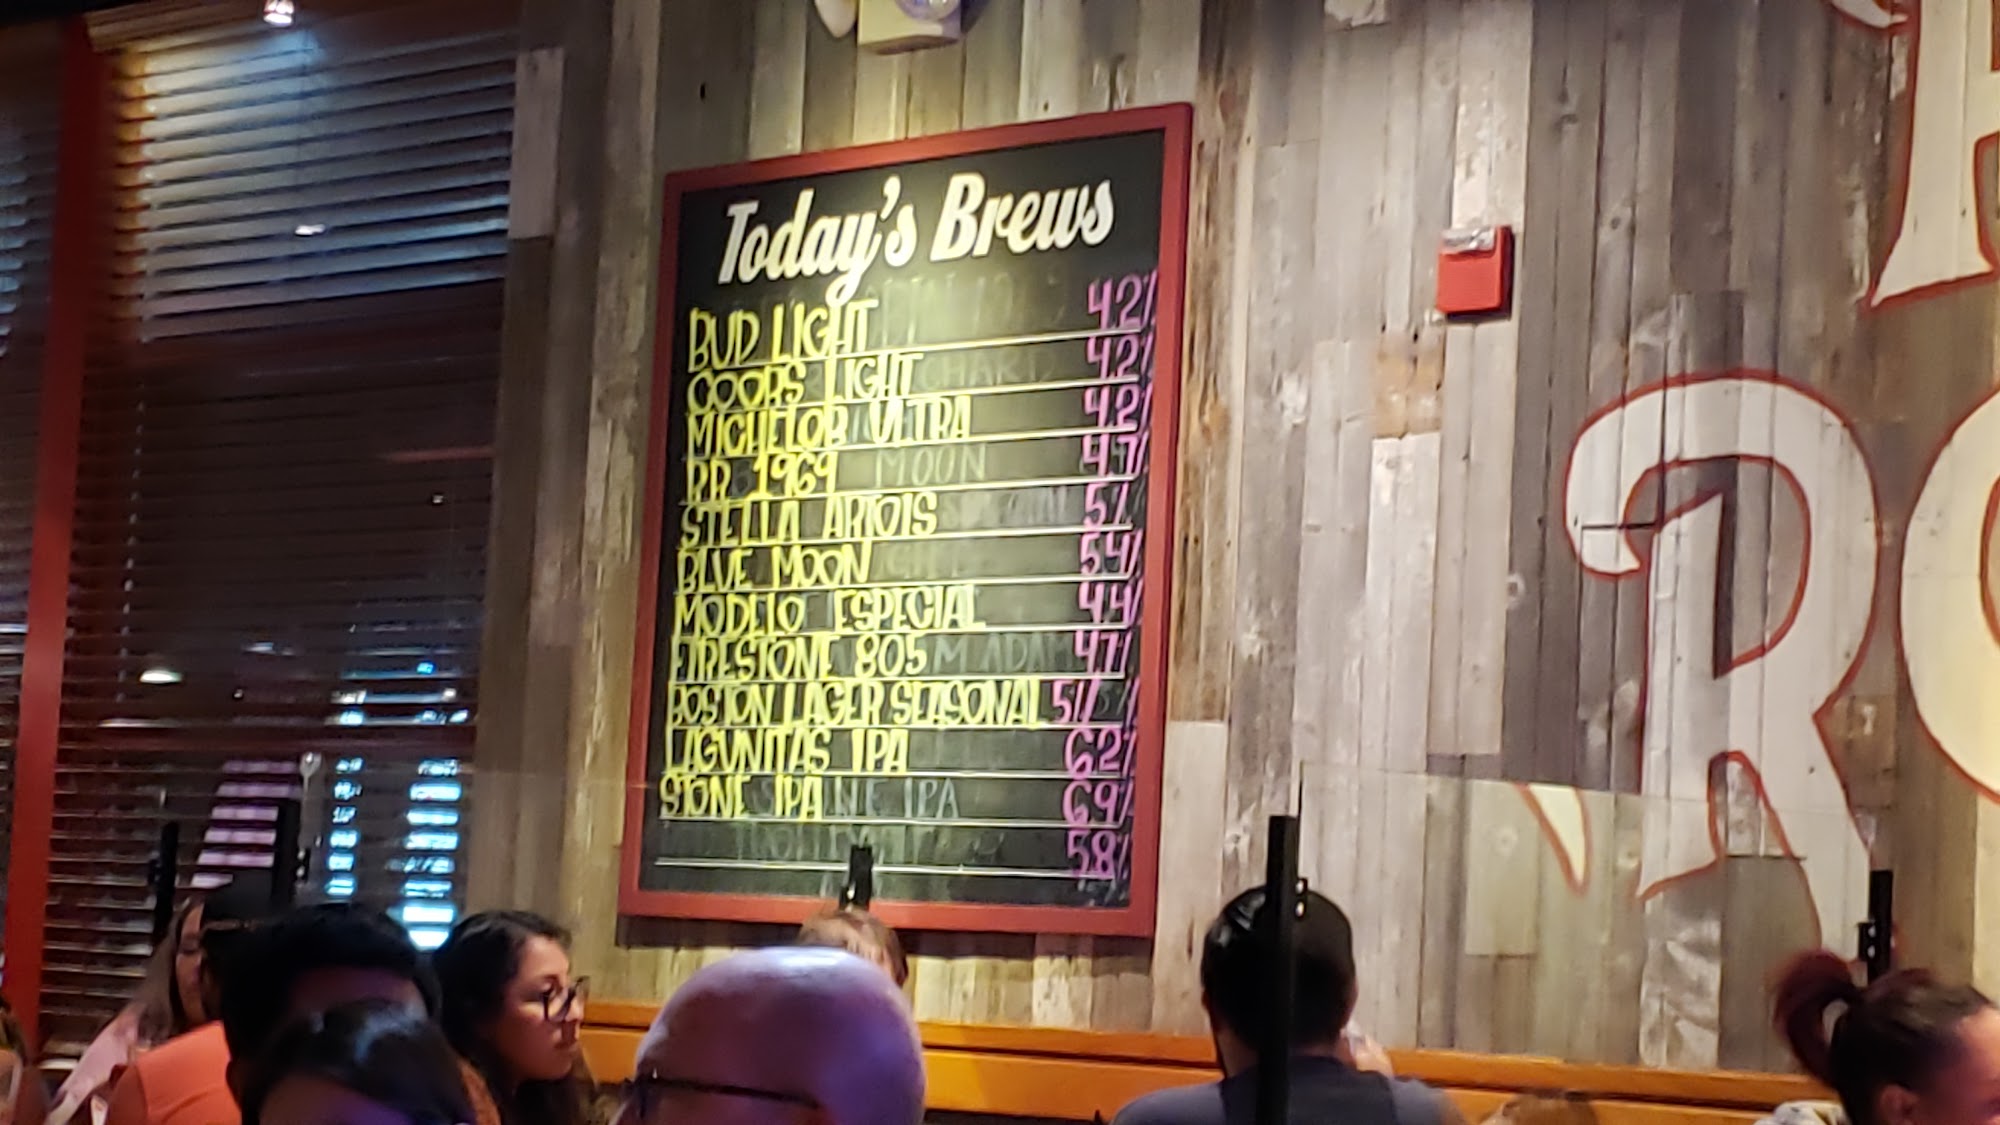 Today's Brews
BUD LIGHT 42%
COORS LIGHT 42%
MICHELOB ULTRA 42%
RR 1969 47%
STELLA ARTOIS 5%
BLUE MOON 54%
MODELO ESPECIAL 44%
FIRESTONE 805 47%
BOSTON LAGER SEASONAL 5%
LAGUNITAS IPA 62%
STONE IPA 69%
58%
R